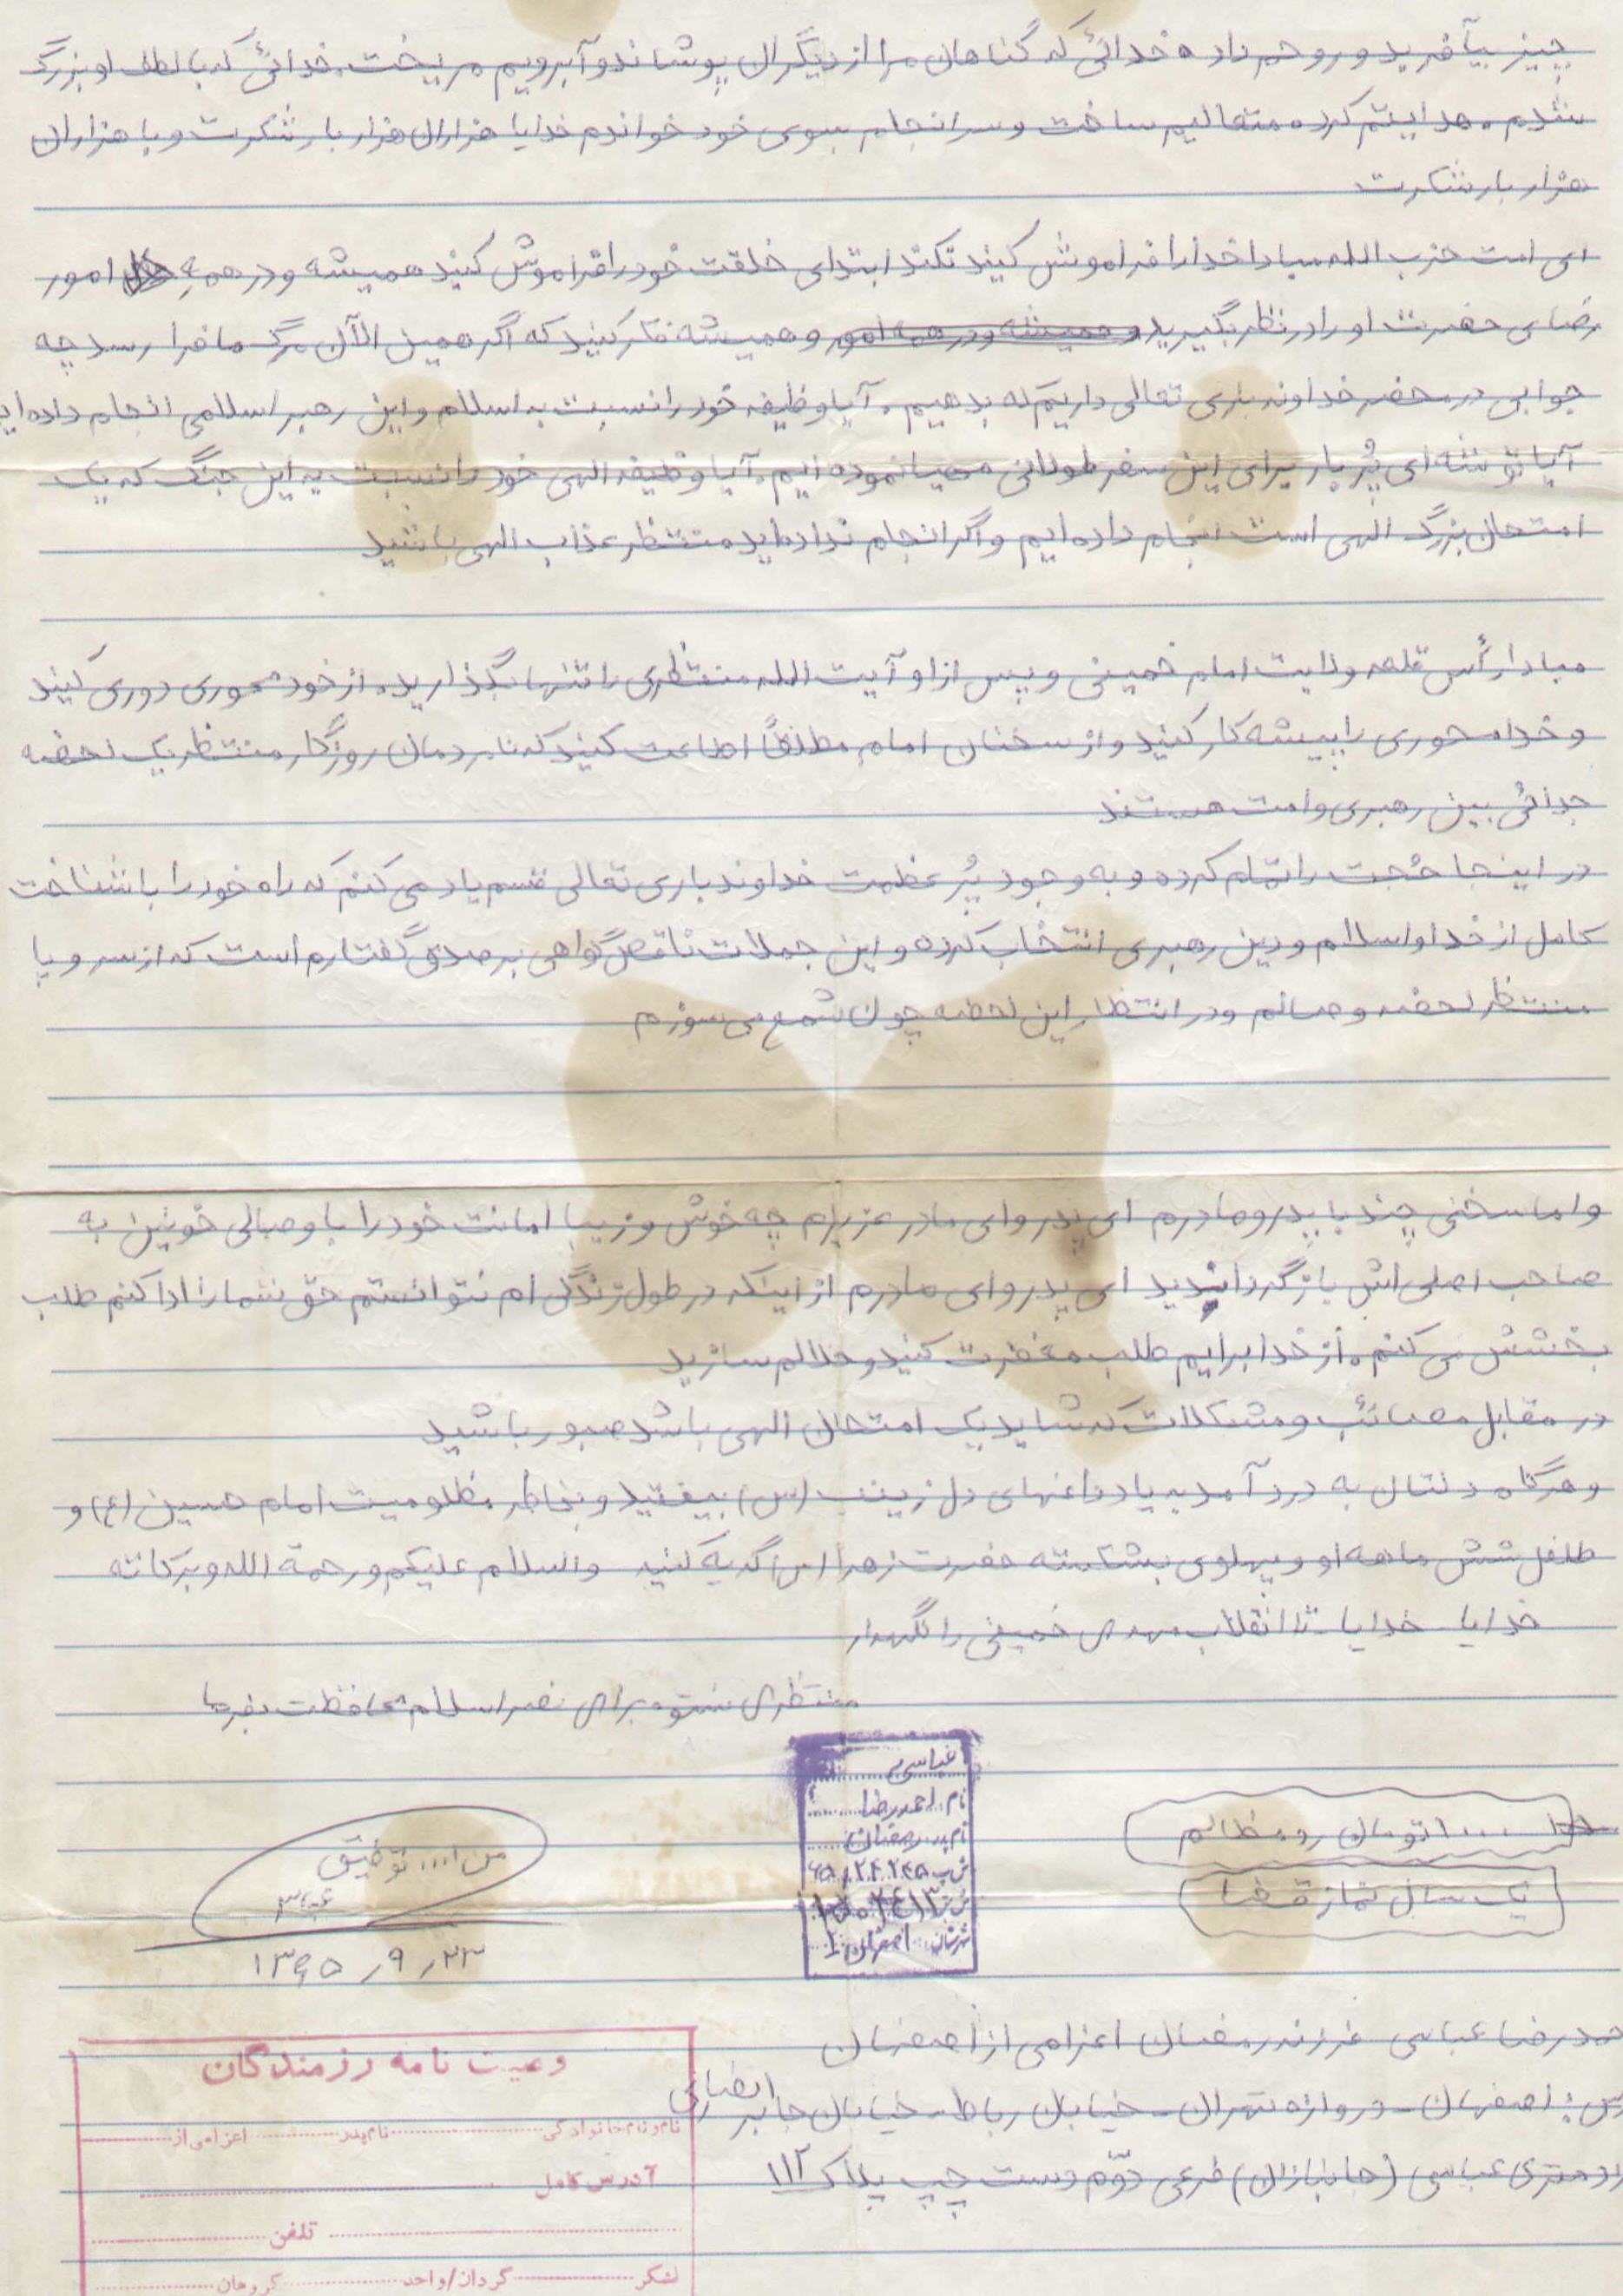 چیز بیآفرید و روحم داد، خدائی که گناهان مرا از دیگران پوشاند و آبرویم مریخت. خدائی که با لطف او بزرگ
شدم، هدایتم کرد، متعالیم ساخت و سرانجام بسوی خود خواندم خدایا هزاران هزار بار شکرت و با هزاران
هزار بار شکرت
ای امت حزب الله مبادا خدا را فراموش کنید نکند ابتدای خلقت خود را فراموش کنید همیشه و در همه امور
رضای حضرت او را در نظر بگیرید و همیشه و در همه امور و همیشه فکر کنید که اگر همین الآن مرگ ما فرا رسد چه
جوابی در محضر خداوند باری تعالی داریم که بدهیم. آیا وظیفه خود را نسبت به اسلام و این رهبر اسلامی انجام داده‌ایم
آیا توشه‌ای پُر بار برای این سفر طولانی مهیا نموده‌ایم. آیا وظیفه الهی خود را نسبت به این جنگ که یک
امتحان بزرگ الهی است انجام داده‌ایم و اگر انجام نداده‌اید منتظر عذاب الهی باشید
مبادا رأس قلعه ولایت امام خمینی و پس از او آیت الله منتظری را تنها بگذارید. از خود محوری دوری کنید
و خدا محوری را پیشه کار کنید و از سخنان امام مطلقاً اطاعت کنید که نامردمان روزگار منتظر یک لحضه
جدائی بین رهبری و امت هستند
در اینجا حُجت را تمام کرده و به وجود پُر عظمت خداوند باری تعالی قسم یاد می کنم که راه خود را با شناخت
کامل از خدا و اسلام و دین رهبری انتخاب کرده و این جملات ناقص گواهی بر صدق گفتارم است که از سر و پا
منتظر لحضه وصالم و در انتظار این لحضه چون شمع می سوزم
و اما سخنی چند با پدر و مادرم ای پدر و ای مادر عزیزم چه خوش و زیبا امانت خود را با وصالی خونین به
صاحب اصلی اش بازگرداندید ای پدر و ای مادرم از اینکه در طول زندگی ام نتوانستم حق شما را ادا کنم طلب
بخشش می کنم. از خدا برایم طلب مغفرت کنید و حلالم سازید
در مقابل مصائب و مشکلات که شاید یک امتحان الهی باشد صبور باشید
و هرگاه دلتان به درد آمد به یاد داغهای دل زینب (س) بیفتید و بخاطر مظلومیت امام حسین (ع) و
طفل شش ماهه او و پهلوی بشکسته حضرت زهرا (س) گریه کنید والسلام علیکم و رحمة الله و برکاته
خدایا خدایا تا انقلاب مهدی خمینی را نگهدار
منتظری نستوه برای نصر اسلام محافظت بفرما
عباسی
نام احمدرضا
نام پدر رمضان
شهرستان اصفهان
۱۰۰۰ تومان رد مظالم
یک سال نماز قضا
من ا... توفیق
۱۳۶۵٫۹٫۲۳
حمدرضا عباسی فرزند رمضان اعزامی از اصفهان
رس: اصفهان - دروازه تهران - خیابان رباط - خیابان جابر انصاری
متری عباسی (جانبازان) فرعی دوّم دست چپ پلاک ۱۱۲
وصیت نامه رزمندگان
نام و نام خانوادگی نام پدر اعزامی از
آدرس کامل
تلفن
لشکر گردان/واحد گروهان